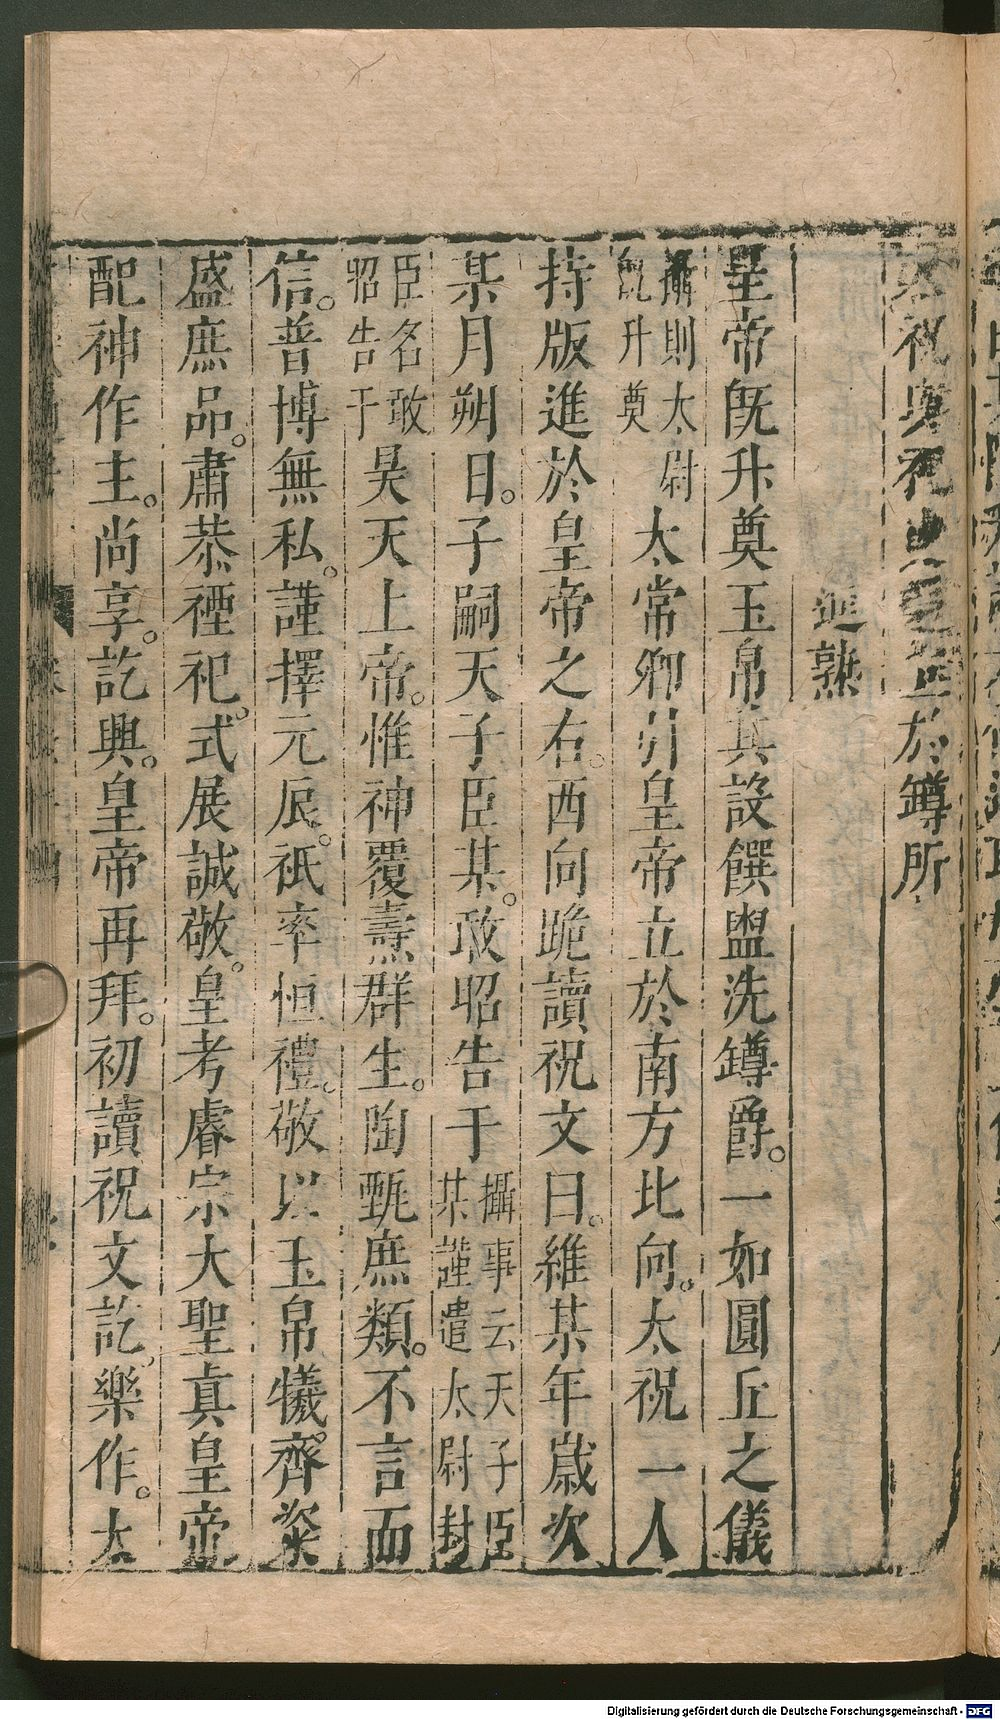 祝與祝史還立於罇所
進熟
皇帝旣升奠玉帛其設饌盥洗罇爵。一如圓丘之儀
攝則太尉旣升奠太常卿引皇帝立於南方北向。太祝一人
持版進於皇帝之右。西向跪讀祝文曰。維某年歲次
某月朔日。子嗣天子臣某。敢昭告于攝事云天子臣某謹遣太尉封
臣名敢昭告于昊天上帝。惟神覆燾群生。陶甄庶類。不言而
信。普博無私。謹擇元辰。祇率恒禮。敬以玉帛犧齊。粢
盛庶品。肅恭禋祀。式展誠敬。皇考睿宗大聖真皇帝
配神作主。尚享。訖興。皇帝再拜。初讀祝文訖，樂作。太
Digitalisierung gefördert durch die Deutsche Forschungsgemeinschaft - DFG